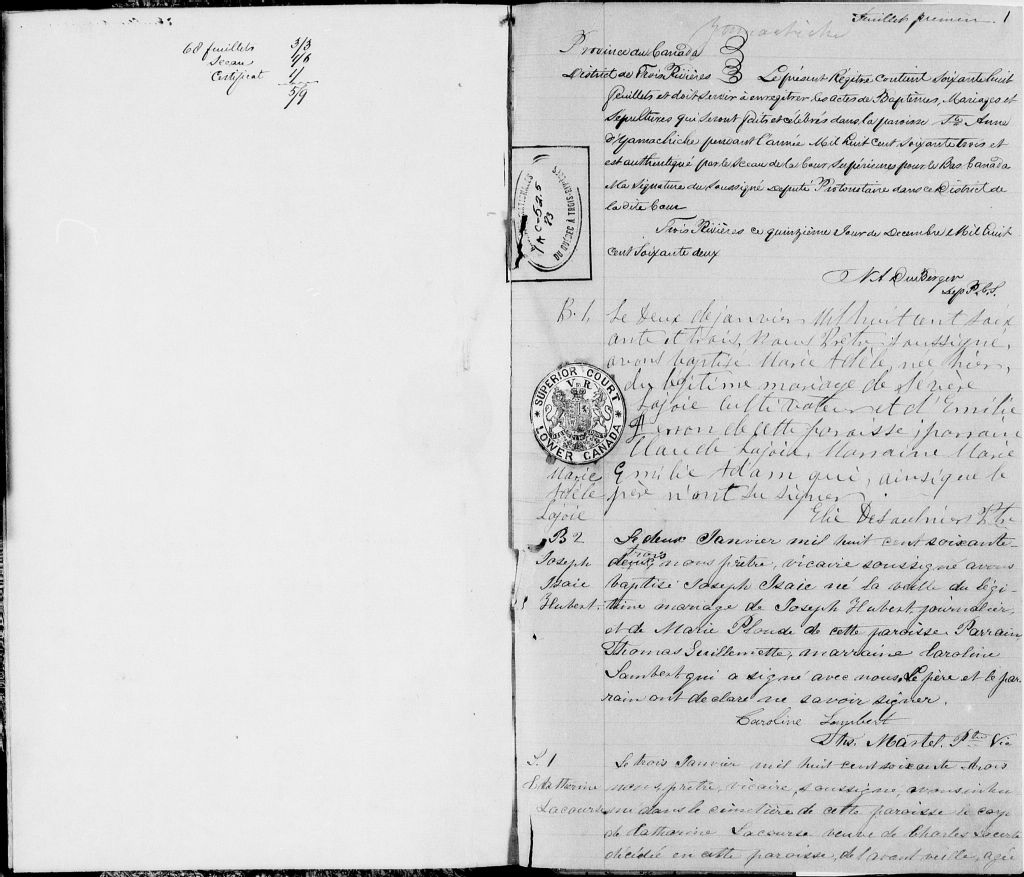 68 feuillets 3/3
Sceau 1/6
Certificat 1/
5/9
Feuillet premier 1
Yamachiche
Province du Canada
District de Trois Rivières
Le présent Régitre contient Soixante huit
feuillets et doit servir à enregitrer les actes de Baptêmes, Mariages et
Sépultures qui seront faits et célébrés dans la paroisse Ste Anne
D'Yamachiche pendant l'année Mil huit cent soixante trois et
est authentiqué par le Sceau de la Cour Supérieure pour le Bas Canada
et la Signature du Soussigné Député Protonotaire dans ce District de
la dite Cour
Trois Rivières ce quinzième Jour de Decembre Mil huit
cent Soixante deux
N A DuBerger
Dep P. C. S.
DU QUÉBEC À TROIS-RIVIÈRES
SUPERIOR COURT
V R
LOWER CANADA
B. 1,
Marie
Adèle
Lajoie
Le Deux de janvier Mil huit cent Soix
ante et trois, Nous Prêtre soussigné,
avons baptisé Marie Adèle, née hier,
du légitime mariage de Sévère
Lajoie cultivateur et d'Emilie
de cette paroisse; parrain
Claude Lajoie, Marraine Marie
Emilie Adam qui, ainsi que le
père n'ont su signer
Elie Desaulniers Ptre
B 2
Joseph
Isaie
Hubert.
Le deux Janvier mil huit cent soixante-
trois
deux, nous prêtre, vicaire soussigné avons
baptisé Joseph Isaie né la veille du légi-
time mariage de Joseph Hubert journalier
et de Marie Plonde de cette paroisse. Parrain
Thomas Guillemette, marraine Caroline
Lambert qui a signé avec nous. Le père et le par-
rain ont declaré ne savoir signer.
Caroline Lambert
Ths. Martel. Ptre Vic
S. 1
Catherine
Lacourse
Le trois Janvier mil huit cent soixante trois
nous prêtre, vicaire, soussigné, avons inhu
mé dans le cimetière de cette paroisse le corps
de Catherine Lacourse veuve de Charles Lacerte
décédée en cette paroisse, de l'avant veille, agée